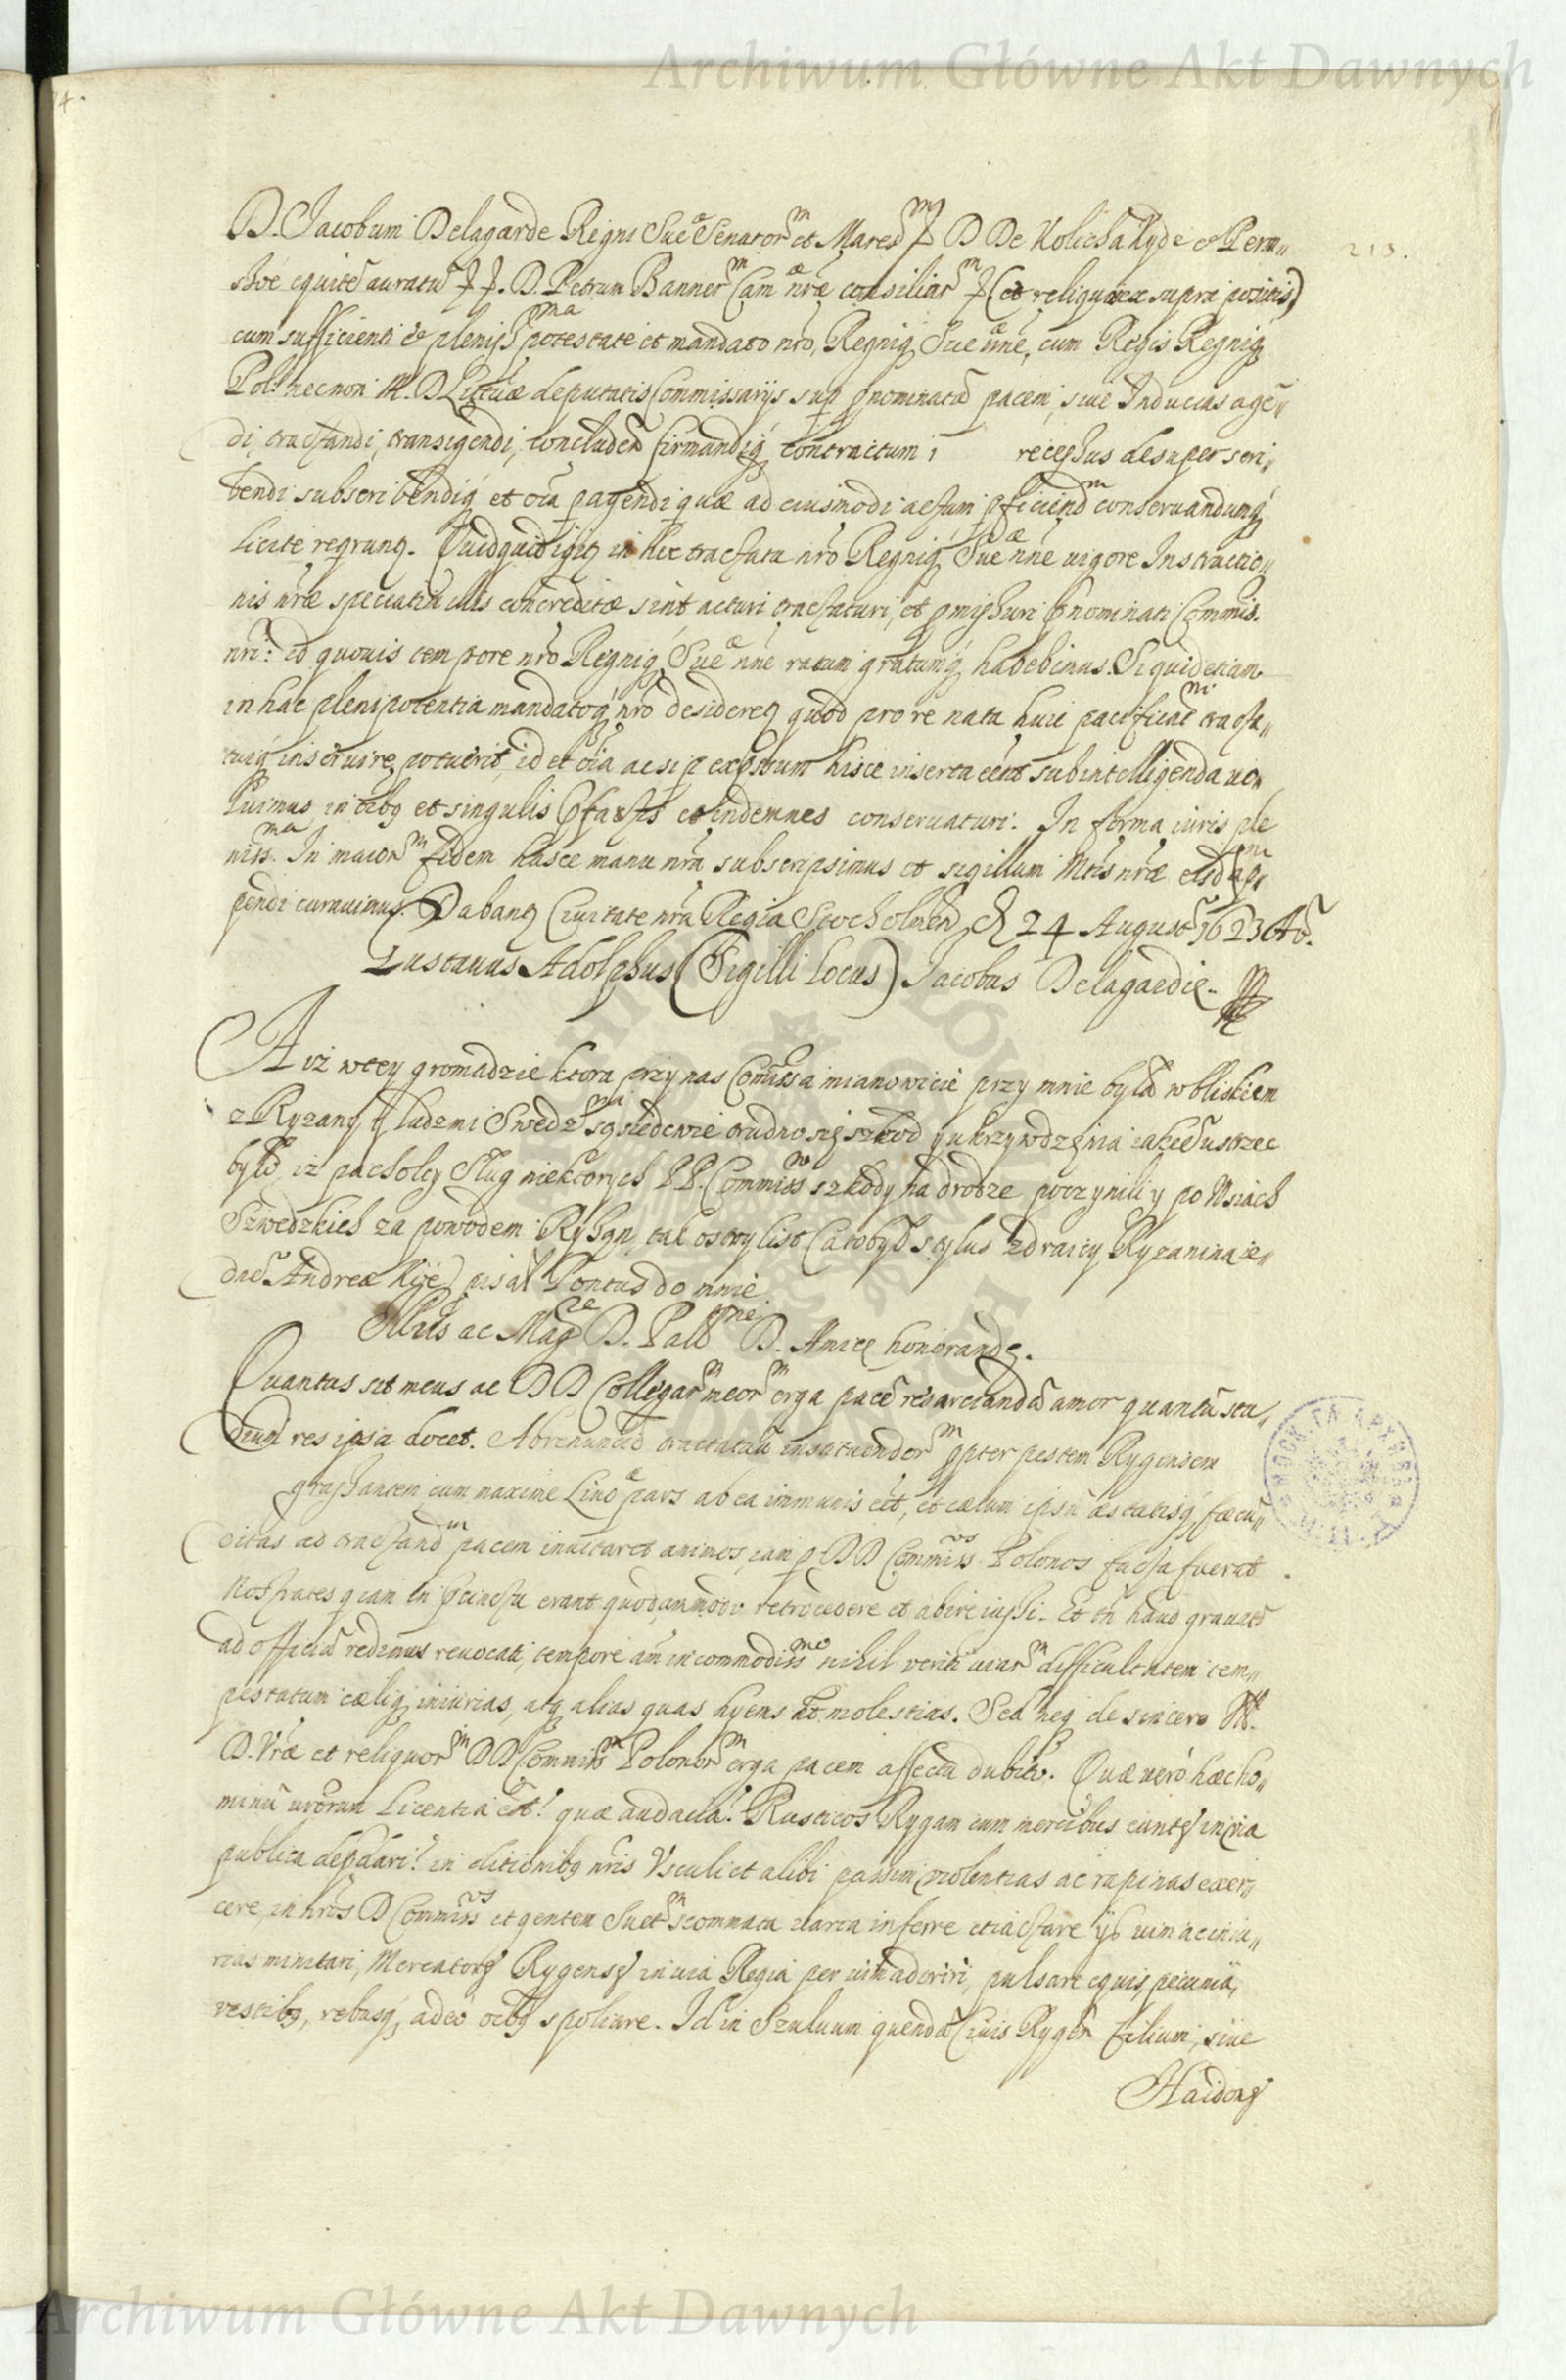 Archiwum Główne Akt Dawnych
213.
D. Jacobum Delagarde Regni Sue^æ Senator^m et Mares^m D De Kolicha Kyde & Perm„
equite auratu D. Petrum Banner^m Cam^æ nræ consiliar^m (et reliquā ex supra positis)
cum sufficienti & pleniss^ma potestate et mandato nro, Regniq Sue^æ nne, cum Regis Regniq
Pol: necnon M. D Lituæ deputatis Commissarijs sup pnominata pacem, siue Inducias age„
di, tractandi, transigendi, concluden firmandiq, contractum, recessus desuper scri„
bendi subscribendiq et oia pagendi quæ ad eiusmodi actum pficiend^m conseruandumq
licite reqrunt. Quidquid igitr in hoc tractatu nro Regniq Sue^æ nne uigore Instructio„
nis nræ speciatim illis concreditæ sint acturi tractaturi, et pmissuri pnominati Commis.
nri: id quouis tempore nro Regniq Sue^æ nne ratum gratumq habebimus. Si quid etiam
in hac plenipotentia mandatoq nro desideretr quod pro re nata huic pacificat^ni tracta„
tuiq inseruire potuerit, id et oia ac si p expssum hisce inserta eēnt subintelligenda uo„
luimus, in oibq et singulis pfactis et indemnes conseruaturi. In forma iuris ple
niss^ma. In maior^m fidem hasce manu nra subscripsimus et sigillum Mtis nræ eisd^m ap„
pendi curauimus. Dabantr Ciuitate nra Regia Stocholmen d 24 August 1623 Ao.
Gustauus Adolphus (Sigilli Locus) Jacobus Delagardie.
A iż w tey gromadzie ktora przy nas Comissa mianowicie przy mnie była w bliskiem
z Ryzany y ludzmi Swedz^mi sąsiedztwie trudno się szkod y ukrzywdzenia ustrzec
było, iz pacholcy Sług niektorych PP. Commiss^w szkody na drodze poczynili y po Wsiach
Szwedzkich za powodem Ryżan, tak ostry list (a to był stylus zdraicy Ryzanina ie„
dne Andreæ Kije) pisał Pontus do mnie
Illris ac Mag^ce D. Palt^ne D. Amice honorande.
Quantus sit meus ac D D Collegar^m meor^m erga pace resarcienda amor quantu stu„
dium res ipsa docet. Abrenuncio tractatuu instituendor^m ppter pestem Rygensem
grassantem, cum maxime Liuo^æ pars ab ea immunis eēt, et cælum ipsu æstatisq fœcu„
ditas ad tractand^m pacem inuitaret animos, iam p D D Commiss^os Polonos facta fuerat.
Nostrates q iam in pcinctu erant quodammodo retrocedere et abire iussi. Et tn haud grauate
ad officia redimus reuocati, tempore am incommodiss^mo nihil veriti uiar^m difficultatem tem„
pestatum cæliq iniurias, atq alias quas hyems ht molestias. Sed neq de sincero M.
D. Vræ et reliquor^m D D Commiss^m Polonor^m erga pacem affectu dubito. Quæ uero hæc ho„
minu uror^m licentia est! quæ audacia! Rusticos Rygam cum mercibus euntes in uia
publica depdari! in ditionibq nris Vsculi et alibi passim violentias ac rapinas exer„
cere, in nros D Commiss^os et gentem Suet^m scommata uaria inferre et iactare ijs uim ac iniu„
rias minitari, Mercatores Rygenses in uia Regia per uim adoriri, pulsare equis, pecunia,
vestibq, rebusq adeo oibq spoliare. Id in Szuluum quenda Ciuis Rygen filium, siue
Haidone
Archiwum Główne Akt Dawnych